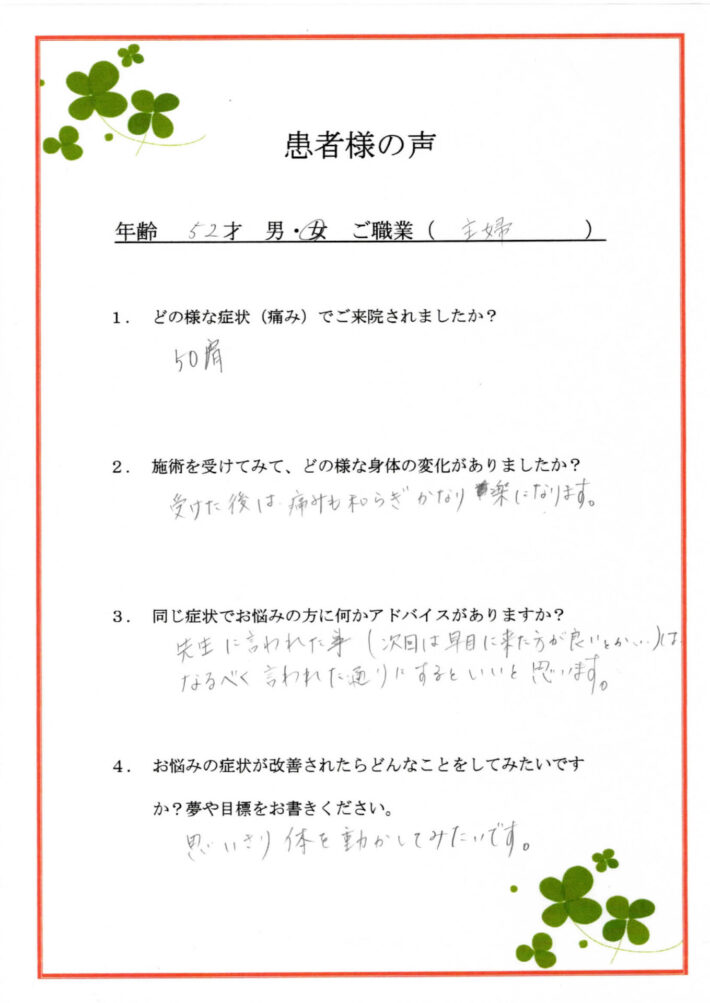 患者様の声
年齢 52才 男・女 ご職業( 主婦 )
1. どの様な症状(痛み)でご来院されましたか?
50肩
2. 施術を受けてみて、どの様な身体の変化がありましたか?
受けた後は痛みも和らぎかなり楽になります。
3. 同じ症状でお悩みの方に何かアドバイスがありますか?
先生に言われた事(次回は早目に来た方が良いとか…)は、
なるべく言われた通りにするといいと思います。
4. お悩みの症状が改善されたらどんなことをしてみたいです
か?夢や目標をお書きください。
思いきり体を動かしてみたいです。